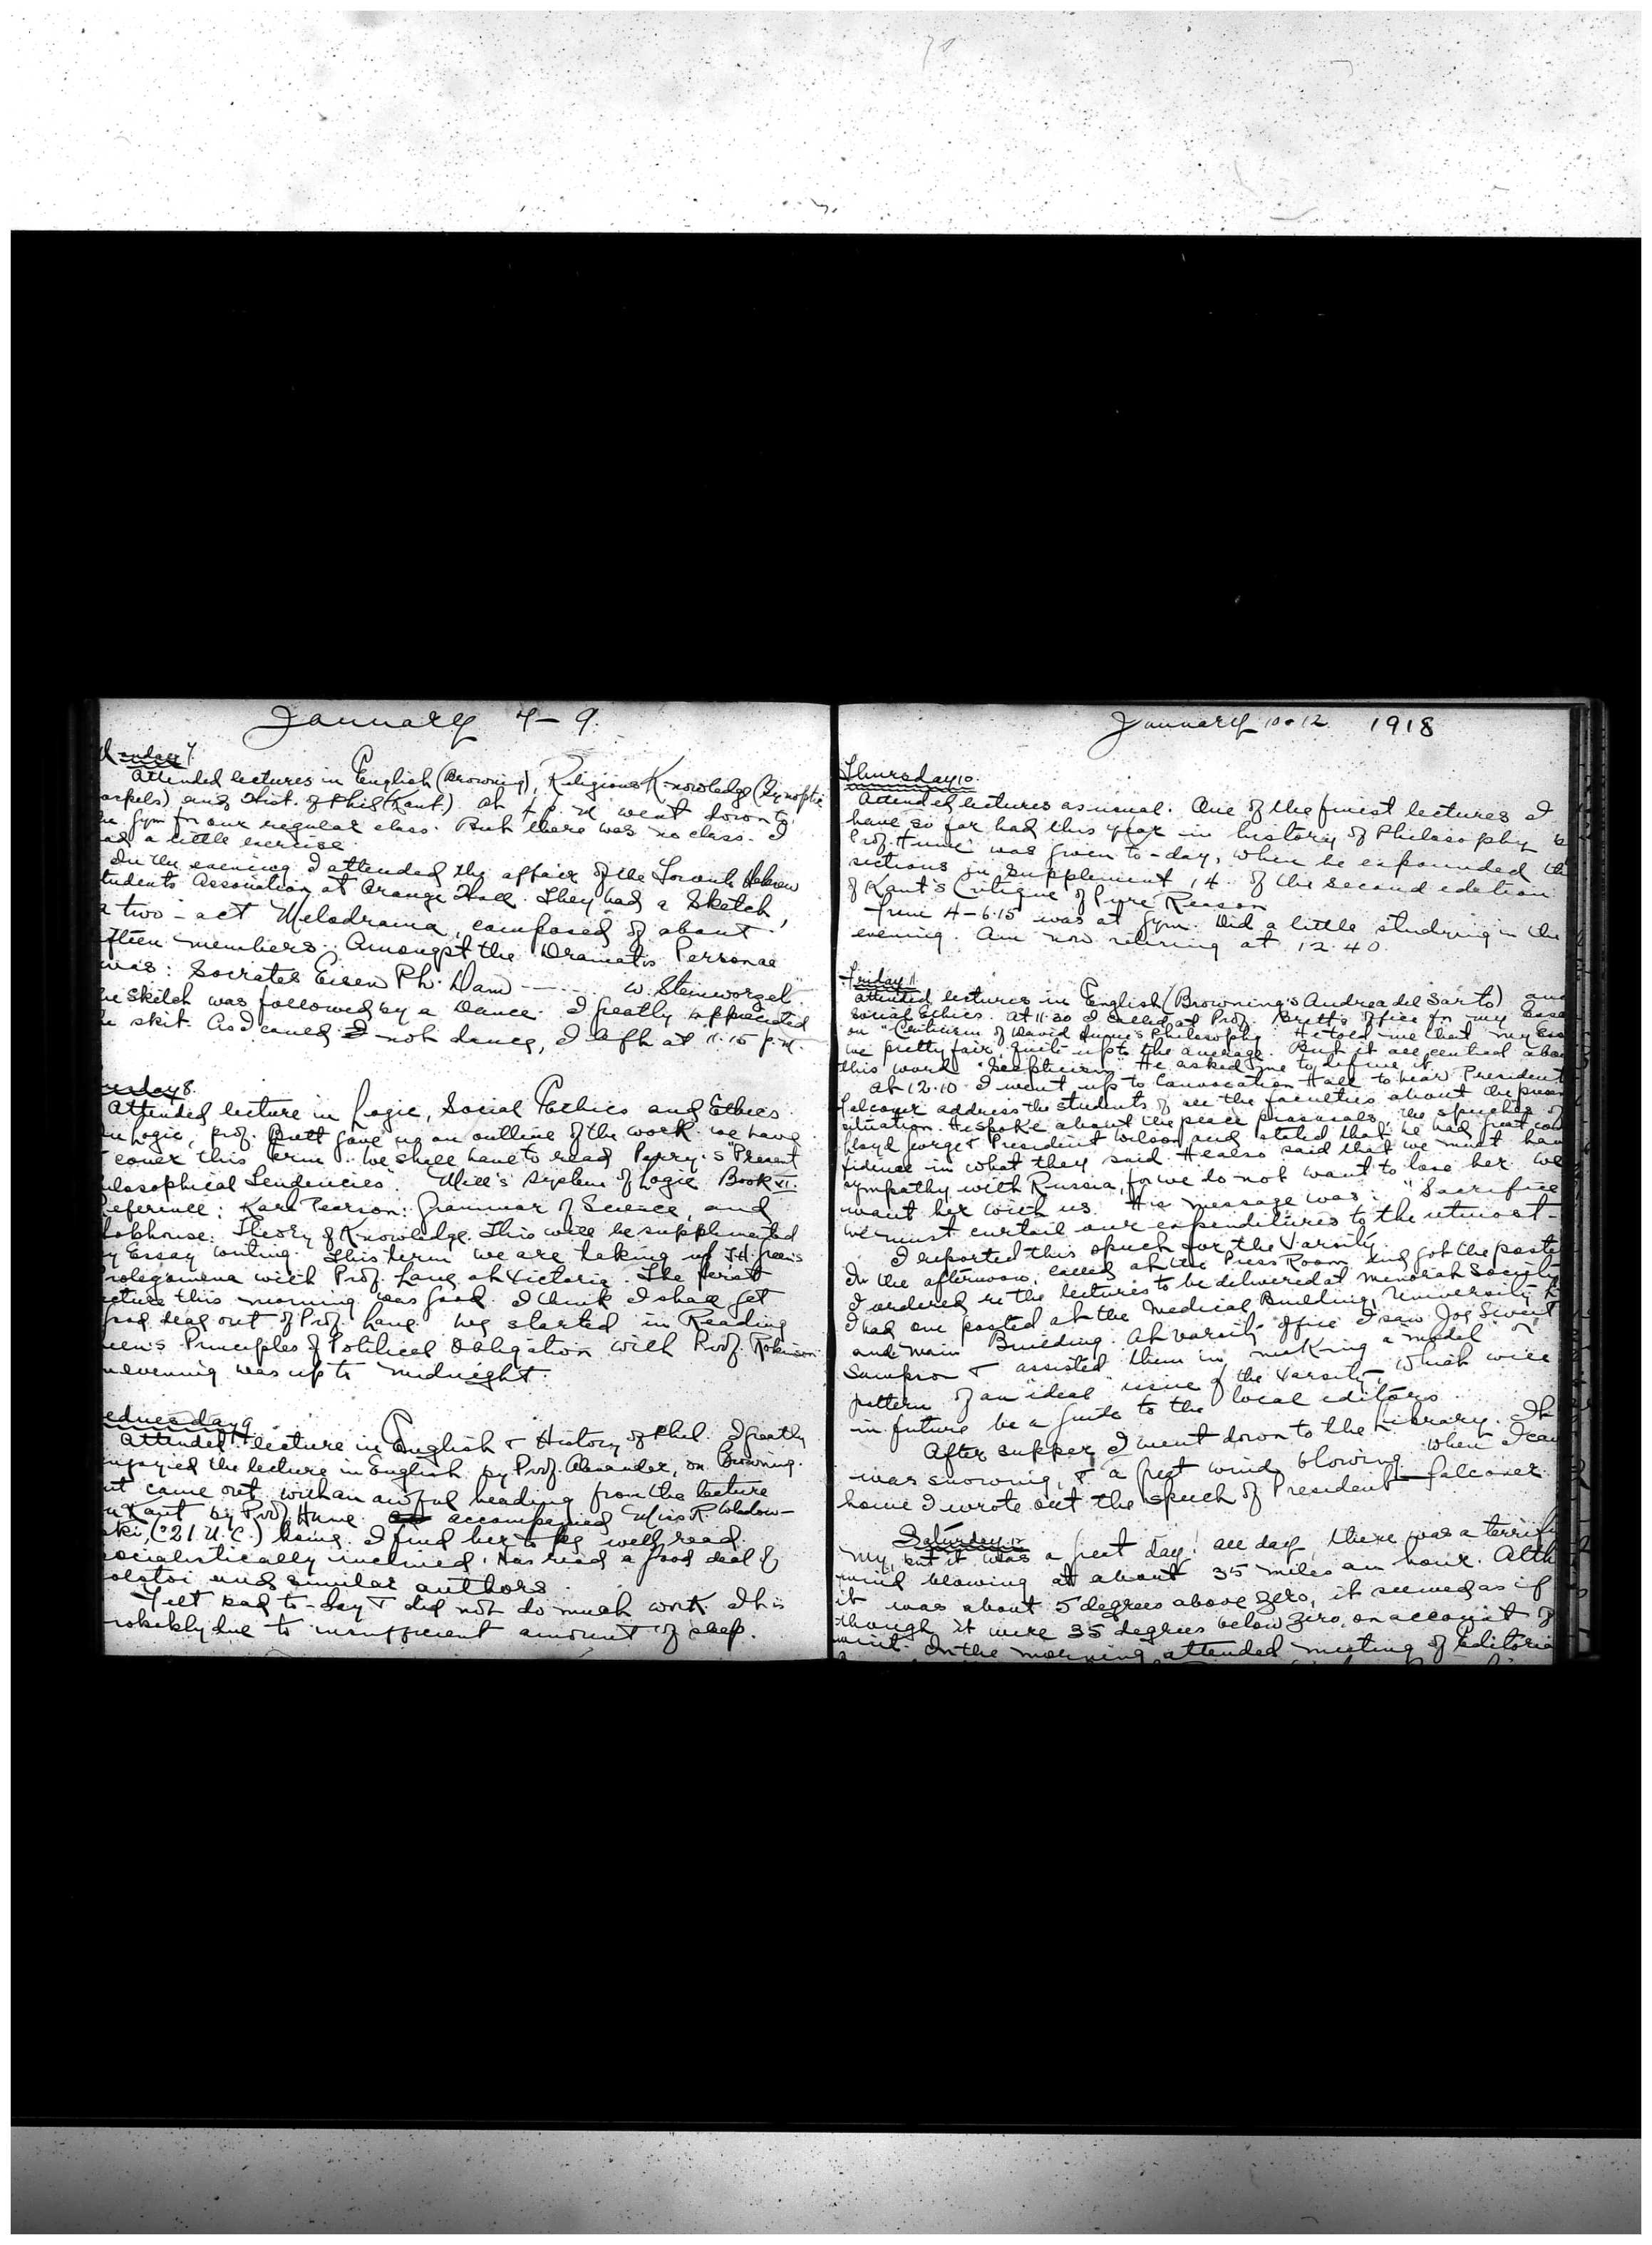 January 7-9.
onday 7.
Attended lectures in English (Browning), Religious Knowledge (Synoptic
ospels) and Hist. of Phil (Kant). At 4 p.m. went down to
he Gym for our regular class. But there was no class. I
ad a little exercise.
In the evening I attended the affair of the Toronto Hebrew
tudents Association at Orange Hall. They had a Sketch,
a two-act Melodrama, composed of about
fteen members. Amongst the Dramatis Personae
was: Socrates Eisen Ph. Dam ------ W. Steinworzel.
he sketch was followed by a Dance. I greatly appreciated
he skit. As I could not dance, I left at 11.15 p.m.
uesday 8.
Attended lecture in Logic, Social Ethics and Ethics.
In Logic, Prof. Brett gave us an outline of the work we have
cover this term. We shall have to read Perry's "Present
ilosophical Tendencies. Mill's System of Logic Book VI.
eference: Karl Pearson: Grammar of Science, and
obhouse: Theory of Knowledge. This will be supplemented
y Essay writing. This term we are taking up T.H. Green's
rolegomena with Prof. Lang at Victoria. The first
ecture this morning was good. I think I shall get
good deal out of Prof. Lang. We started in Reading
reen's Principles of Political Obligation with Prof. Robinson
n evening was up to midnight.
ednesday 9
Attended lecture in English & History of Phil. I greatly
njoyied the lecture in English by Prof. Alexander, on Browning.
ut came out with an awful heading from the lecture
n Kant by Prof. Hume accompanied Miss R.
ski, ('21 U.C.) home. I find her to be well read.
ocialistically inclined. Has read a good deal of
olstoi and similar authors.
Felt bad to-day & did not do much work. It is
robably due to insufficient amount of sleep.
January 10-12. 1918
Thursday 10.
Attended lectures as usual. One of the finest lectures I
have so far had this year in history of Philosophy b
Prof. Hume was given to-day, when he expounded the
sections in Supplement 14 of the second edition
of Kant's Critique of Pure Reason
From 4-6.15 was at Gym. Did a little studying in the
evening. Am now retiring at 12.40.
Friday 11.
Attended lectures in English (Browning's Andrea del Sarto) and
Social Ethics. At 11.30 I called at Prof. Brett's office for my Essa
on "Criticism of David Hume's Philosophy. He told me that my Ess
was pretty fair, quite up to the average. But it all centred abou
this word "Scepticism". He asked me to define it.
At 12.10 I went up to Convocation Hall to hear President
Falconer address the students of all the faculties about the prese
situation. He spoke about the peace proposals, the speeches of
Lloyd George & President Wilson and stated that he had great con
fidence in what they said. He also said that we must hav
sympathy with Russia, for we do not want to lose her. We
want her with us. His message was: "Sacrifice
we must curtail our expenditures to the utmost.
I reported this speech for the Varsity.
In the afternoon, called at the Press Room and got the poste
I ordered re the lectures to be delivered at Menorah Society
I had one posted at the Medical Building, University
and Main Building. At Varsity office I saw Joe
Sampson & assisted them in making a model or
pattern of an "ideal" issue of the Varsity, which will
in future be a guide to the local editors.
After supper, I went down to the Library. It
was snowing, & a great wind blowing. When I cam
home I wrote out the speech of President Falconer.
Saturday 12
My, but it was a great day! All day there was a terrifi
wind blowing at about 35 miles an hour. Alth
it was about 5 degrees above zero, it seemed as if
though it were 35 degrees below zero, on account of
wind. In the morning attended meeting of Editoria